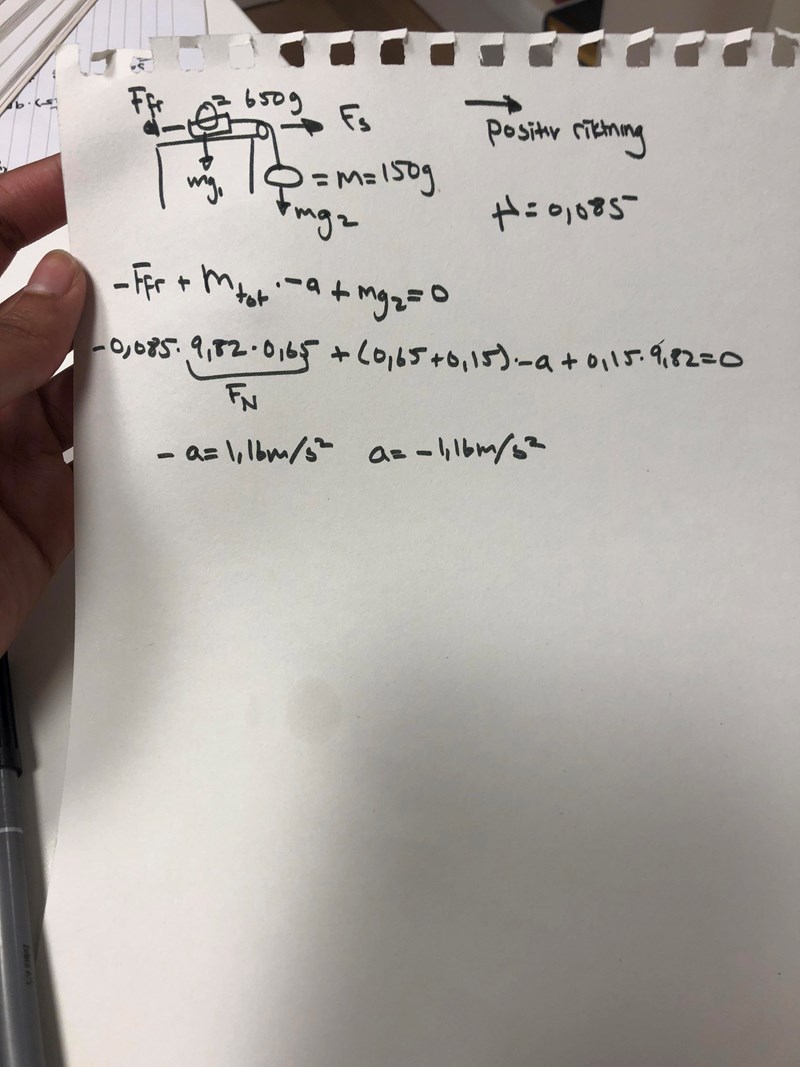 Ffr = 650g Fs
Positiv riktning
mg1 = m = 150g
mg2 μ = 0,085
-Ffr + mtot · -a + mg2 = 0
-0,085 · 9,82 · 0,65 + (0,65 + 0,15) · -a + 0,15 · 9,82 = 0
FN
- a = 1,16m/s² a = -1,16m/s²